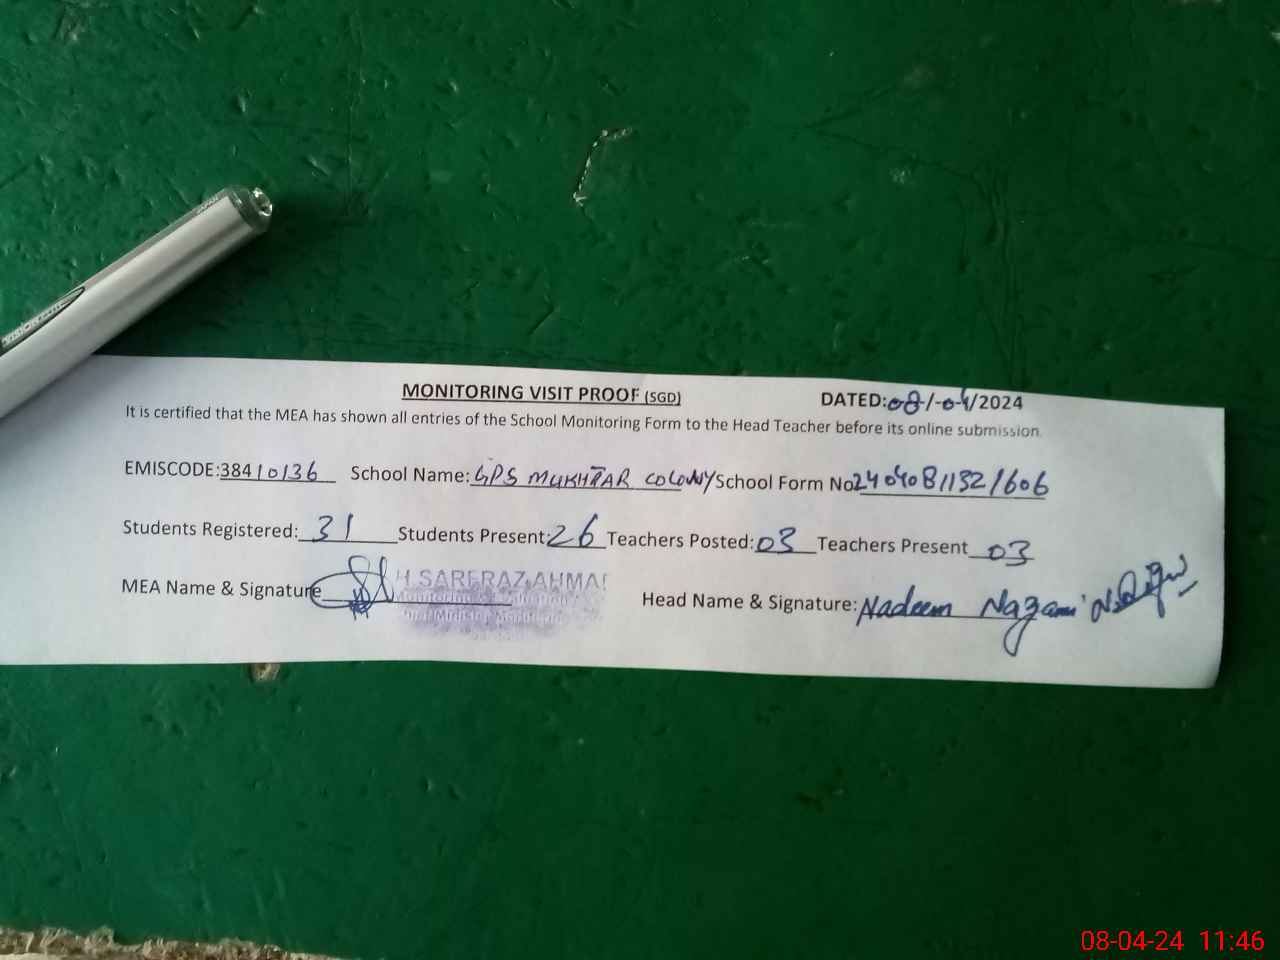 MONITORING VISIT PROOF (SGD) DATED:08/-04/2024
It is certified that the MEA has shown all entries of the School Monitoring Form to the Head Teacher before its online submission.
EMISCODE:38410136 School Name: GPS MUKHTAR COLONY School Form No 24040811321606
Students Registered: 31 Students Present: 26 Teachers Posted: 03 Teachers Present 03
MEA Name & Signature H SARFRAZ AHMAD Head Name & Signature: Nadeem Nazami
Monitoring
VISION ELITE
JAPAN
08-04-24 11:46